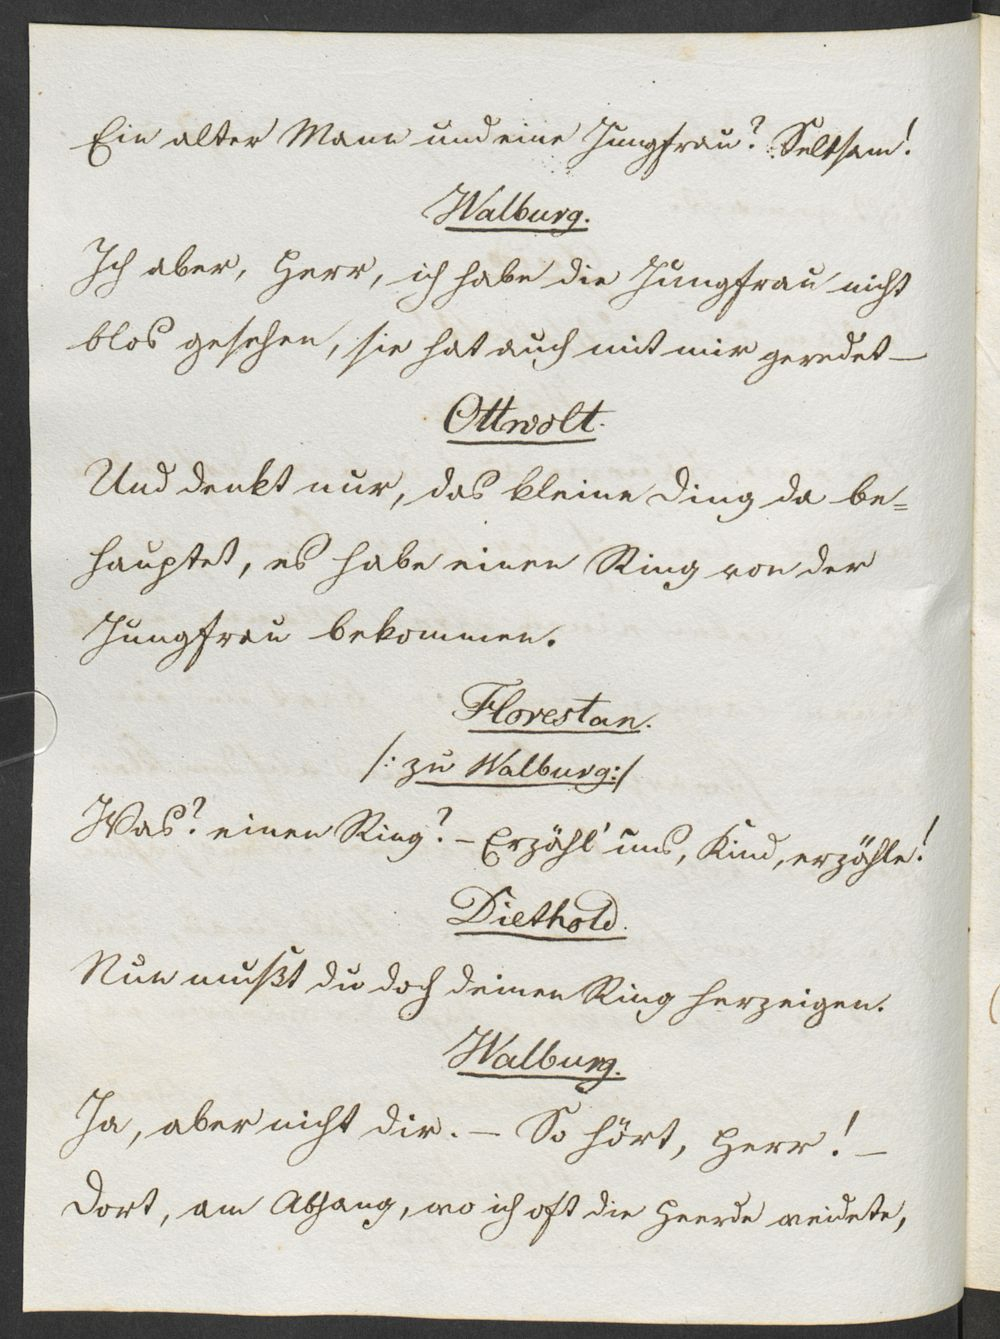 Ein alter Mann und eine Jungfrau? Seltsam!
Walburg.
Ich aber, Herr, ich habe die Jungfrau nicht
blos gesehen, sie hat auch mit mir geredet —
Ottwolt.
Und denkt nur, das kleine Ding da be=
hauptet, es habe einen Ring von der
Jungfrau bekommen.
Florestan.
/: zu Walburg :/
Was? einen Ring? — Erzähl' uns, Kind, erzähle!
Diethold.
Nun mußt du doch deinen Ring herzeigen.
Walburg.
Ja, aber nicht dir. — So hört, Herr! —
Dort, am Abhang, wo ich oft die Heerde weidete,